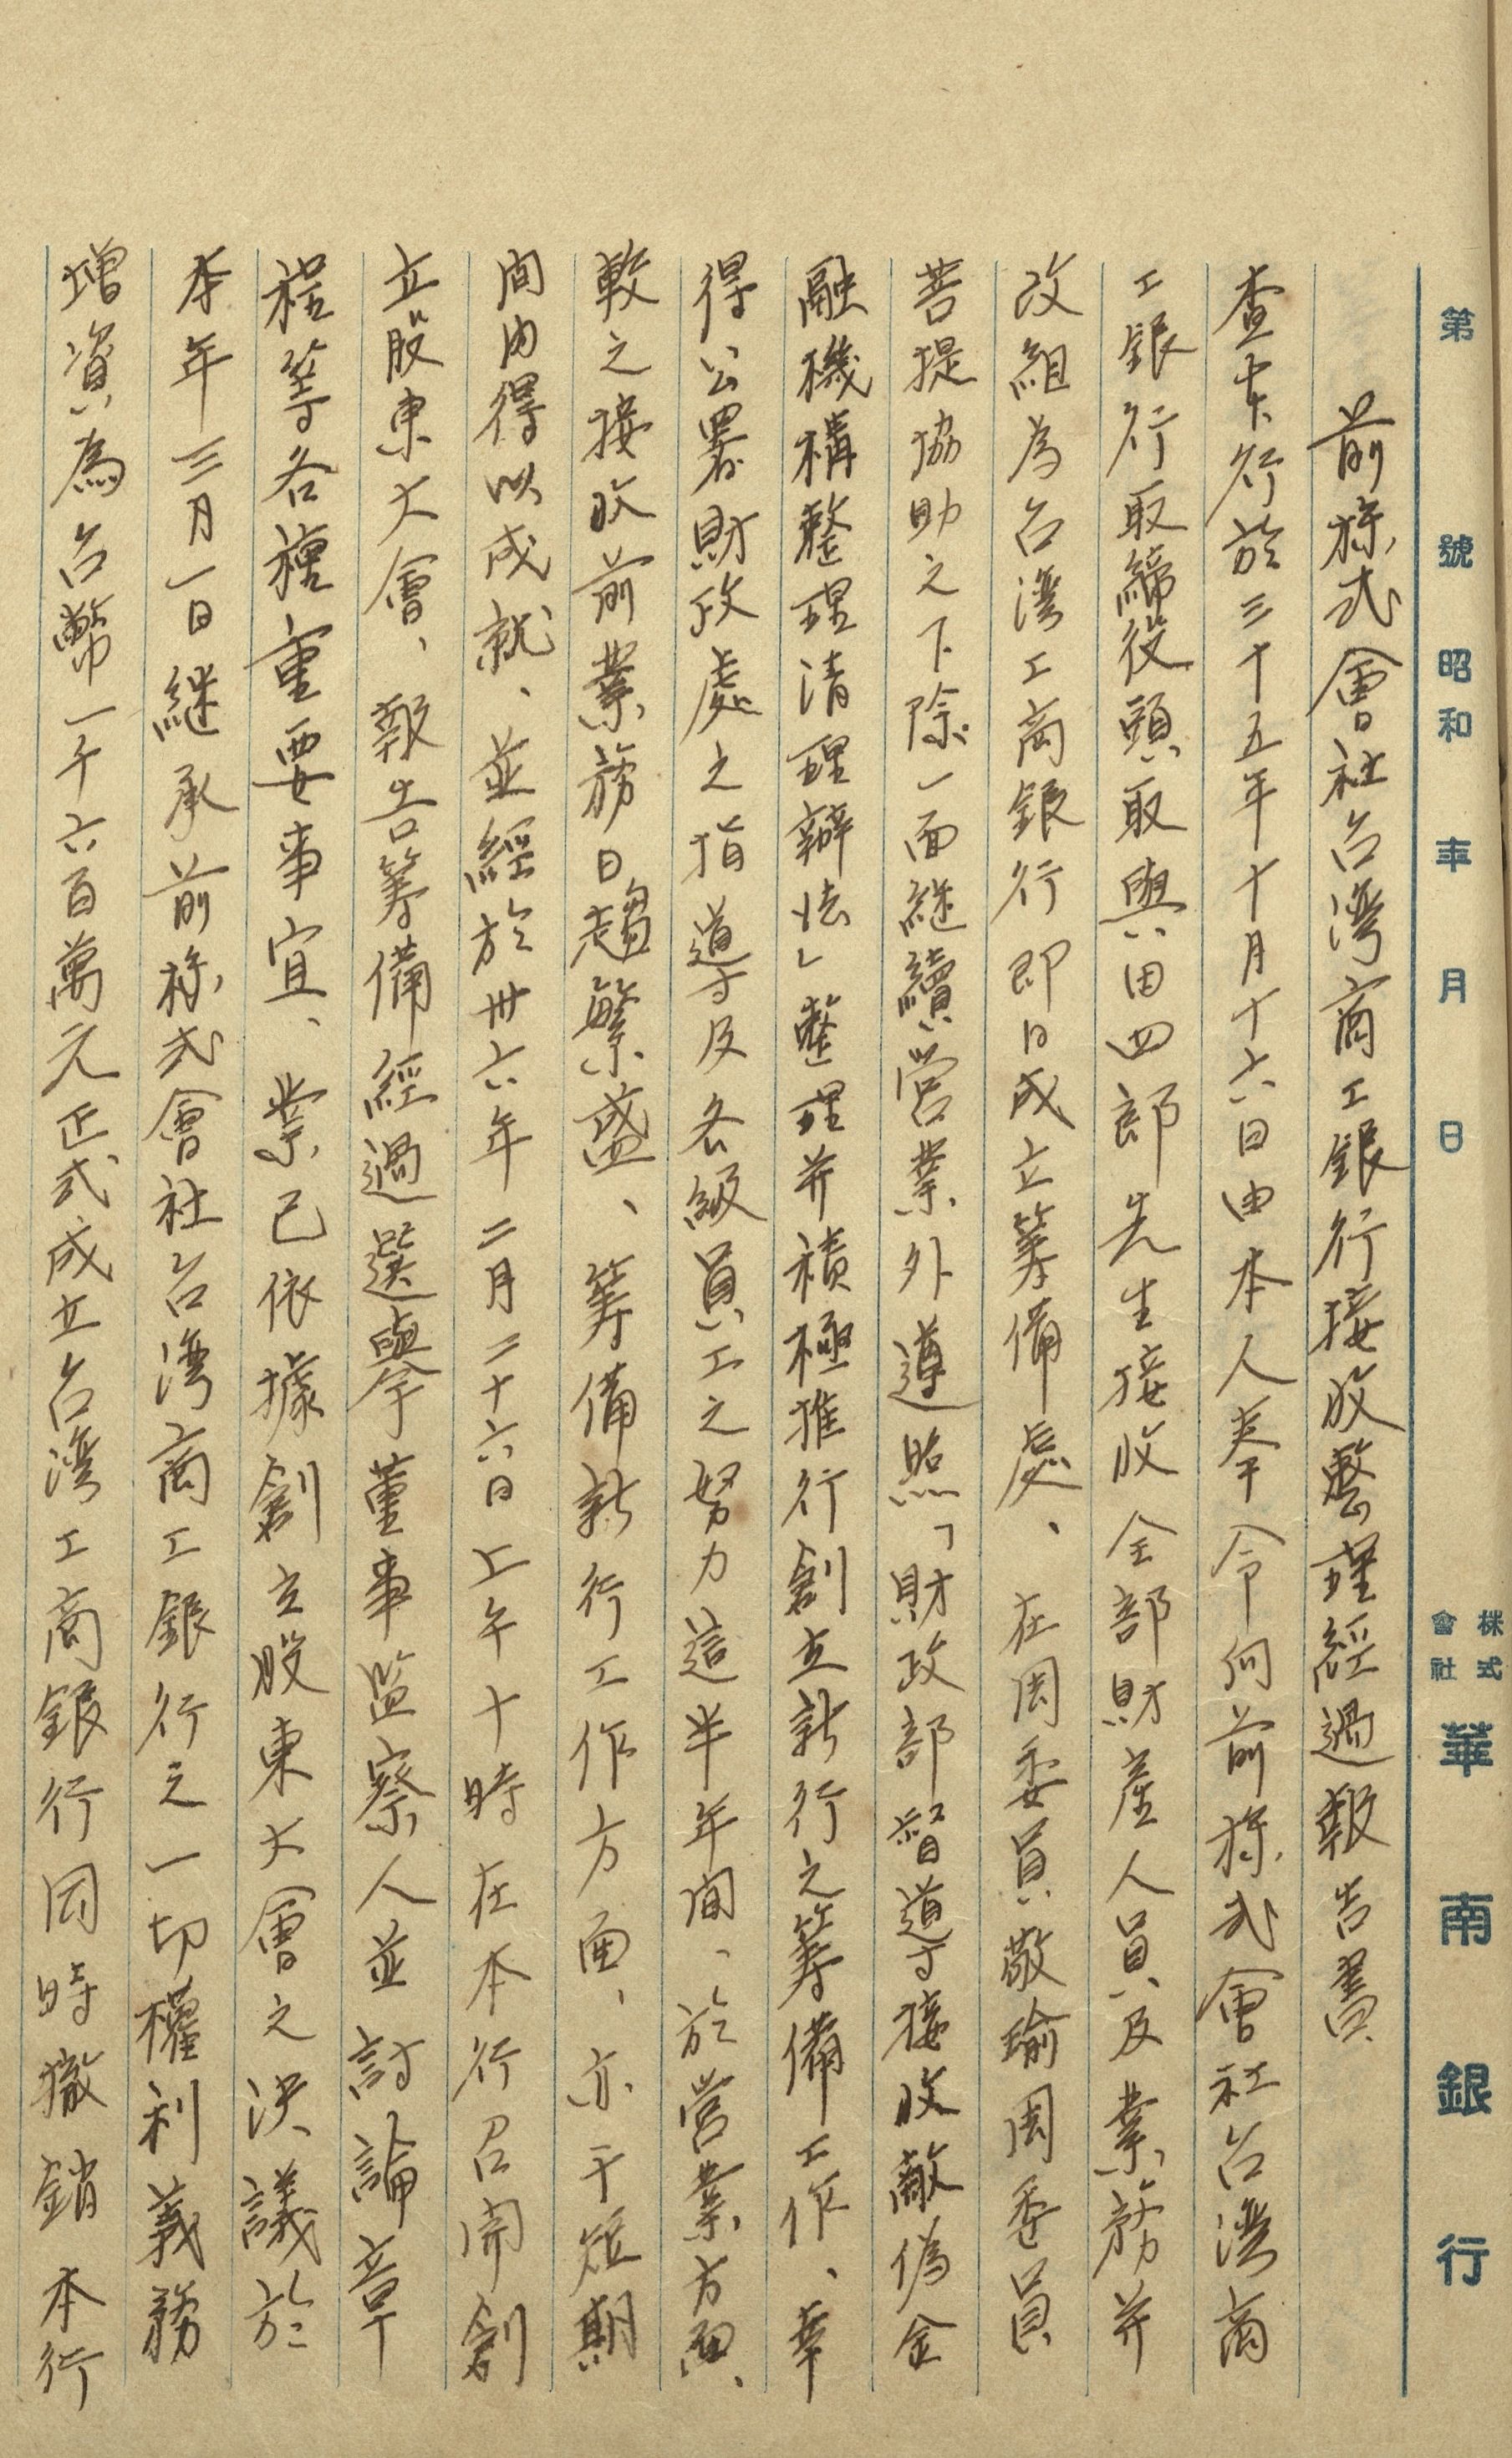 第 號 昭和 年 月 日 株式會社 華南銀行
前株式會社台灣商工銀行接收整理經過報告書
查本行於三十五年十月十六日由本人奉令向前株式會社台灣商
工銀行取締役頭取與田四郎先生接收全部財產人員及業務并
改組為台灣工商銀行即日成立籌備處、在周委員敬瑜周委員
菩提協助之下除一面繼續營業外遵照「財政部督導接收敵偽金
融機構整理清理辦法」整理并積極推行創立新行之籌備工作、幸
得公署財政處之指導及各級員工之努力這半年間、於營業方面、
較之接收前業務日趨繁盛、籌備新行工作方面、亦于短期
間內得以成就、並經於卅六年二月二十六日上午十時在本行召開創
立股東大會、報告籌備經過選舉董事監察人並討論章
程等各種重要事宜、業已依據創立股東大會之決議於
本年三月一日繼承前株式會社台灣商工銀行之一切權利義務
增資為台幣一千六百萬元正式成立台灣工商銀行同時撤銷本行